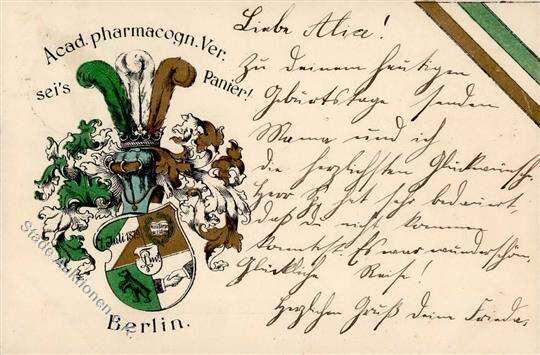 Acad. pharmacogn. Ver:
sei's Panier!
7. Juli 18
Berlin.
Liebe Alice!
Zu deinem heutigen
Geburtstage senden
Mama und ich
die herzlichsten Glückwünsche.
Herr hat sehr bedauert,
daß du nicht kommen
konntest. Es war wunderschön,
Glückliche Reise!
Herzlichen Gruß deine Frieda.